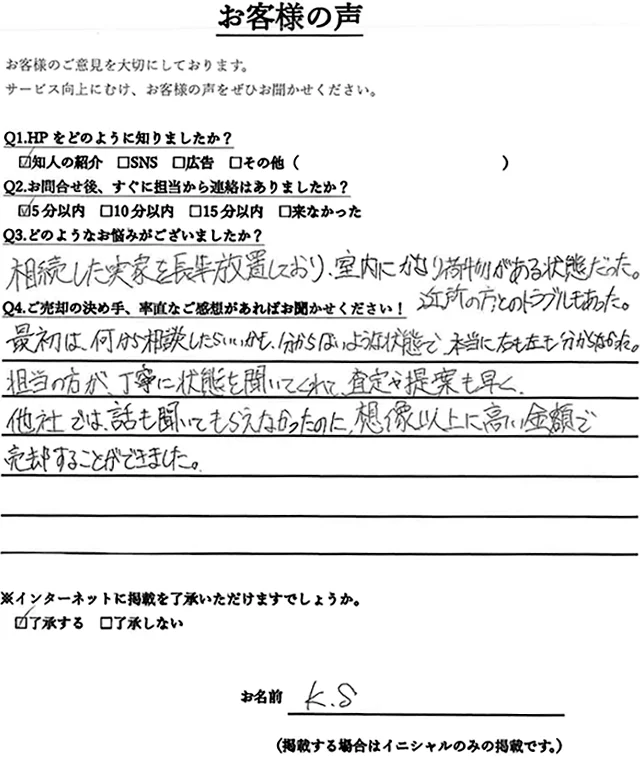 お客様の声
お客様のご意見を大切にしております。
サービス向上にむけ、お客様の声をぜひお聞かせください。
Q1.HPをどのように知りましたか?
☑知人の紹介 □SNS □広告 □その他（ ）
Q2.お問合せ後、すぐに担当から連絡はありましたか?
☑5分以内 □10分以内 □15分以内 □来なかった
Q3.どのようなお悩みがございましたか?
相続した実家を長年放置しており、室内にかなり荷物がある状態だった。
近所の方とのトラブルもあった。
Q4.ご売却の決め手、率直なご感想があればお聞かせください!
最初は、何から相談したらいいかも、分からないような状態で、本当に右も左も分からなかった。
担当の方が、丁寧に状態を聞いてくれて、査定や提案も早く、
他社では、話も聞いてもらえなかったのに、想像以上に高い金額で
売却することができました。
※インターネットに掲載を了承いただけますでしょうか。
☑了承する □了承しない
お名前 K.S
（掲載する場合はイニシャルのみの掲載です。）